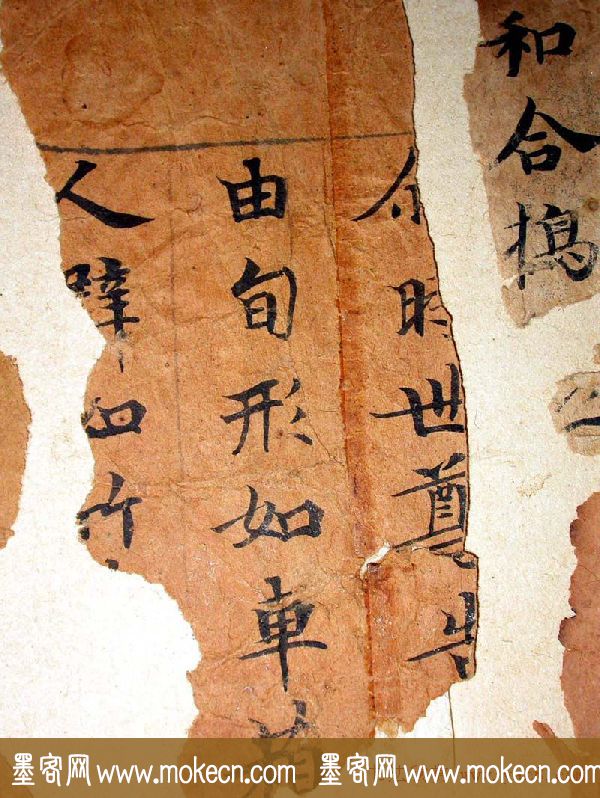 和合搗
尔時世尊
由旬形如車
人
墨客网 www.mokecn.com 墨客网 www.mokecn.com